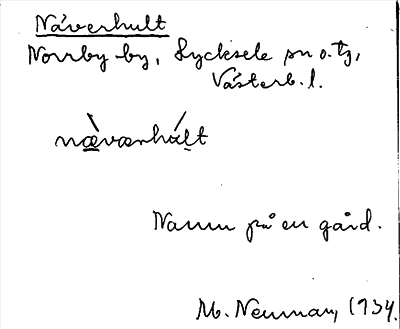 Näverhult
Norrby by, Lycksele sn o. tg,
Västerb. l.
næværhúlt
Namn på en gård.
M. Neuman, 1934.